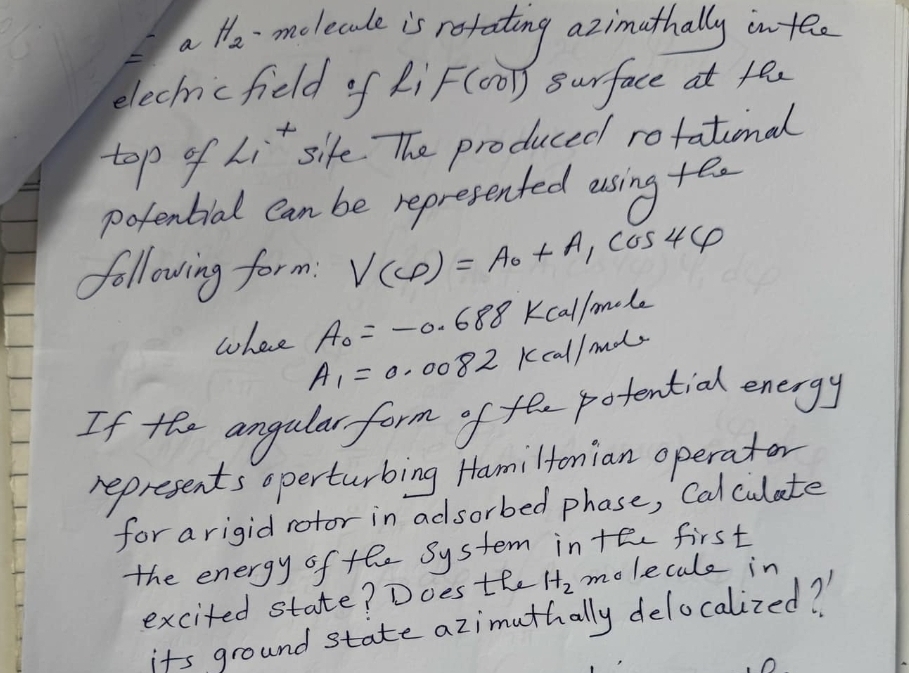 a H₂-molecule is rotating azimuthally in the
electric field of LiF(001) surface at the
top of Li⁺ site. The produced rotational
potential can be represented using the
following form: V(φ) = A₀ + A₁ cos 4φ
where A₀ = -0.688 Kcal/mole
A₁ = 0.0082 Kcal/mole
If the angular form of the potential energy
represents a perturbing Hamiltonian operator
for a rigid rotor in adsorbed phase, Calculate
the energy of the system in the first
excited state? Does the H₂ molecule in
its ground state azimuthally delocalized?